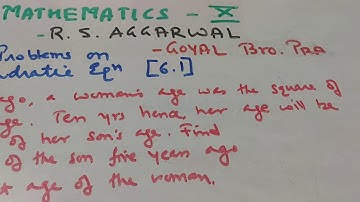 MATHEMATICS - X
- R. S. AGGARWAL
Problems on - GOYAL Bro. PRA
adratic Eqn [6.1]
ago, a woman's age was the square of
age. Ten yrs hence, her age will be
of her son's age. Find
of the son five years ago
* age of the woman.